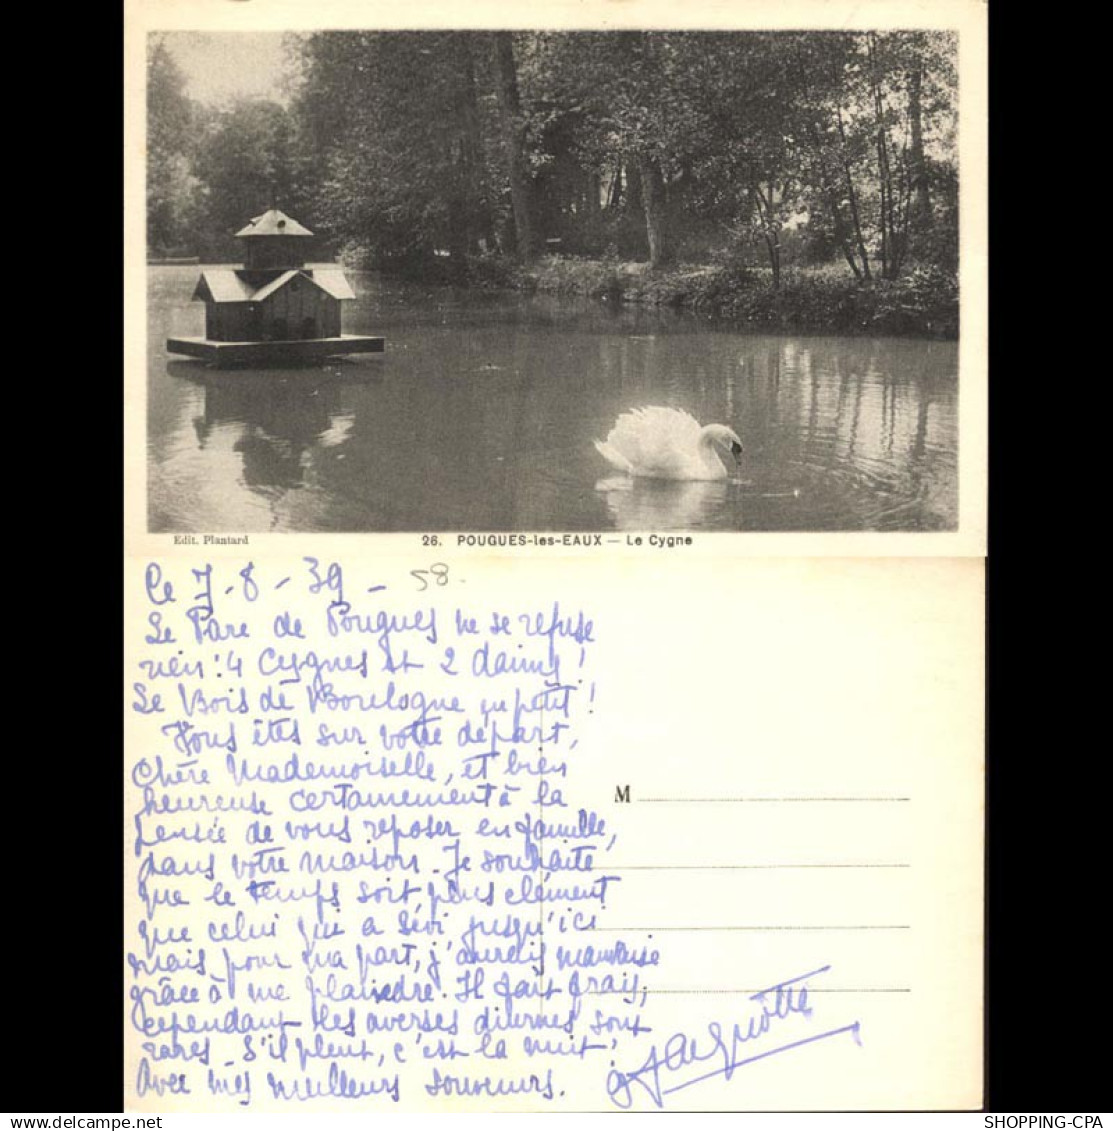 Edit. Plantard
26. POUGUES-les-EAUX — Le Cygne
Le 7-8-39- 58.
Le Parc de Pougues ne se refuse
rien : 4 Cygnes et 2 daims !
Le Bois de Boulogne en petit !
Vous êtes sur votre départ,
Chère Mademoiselle, et bien
heureuse certainement à la
pensée de vous reposer en famille,
dans votre maison. Je souhaite
que le temps soit plus clément
que celui qui a sévi jusqu'ici
mais pour ma part, j'aurais mauvaise
grâce à me plaindre. Il fait frais,
cependant les averses diurnes sont
rares - S'il pleut, c'est la nuit,
Avec mes meilleurs souvenirs.
M
SHOPPING-CPA